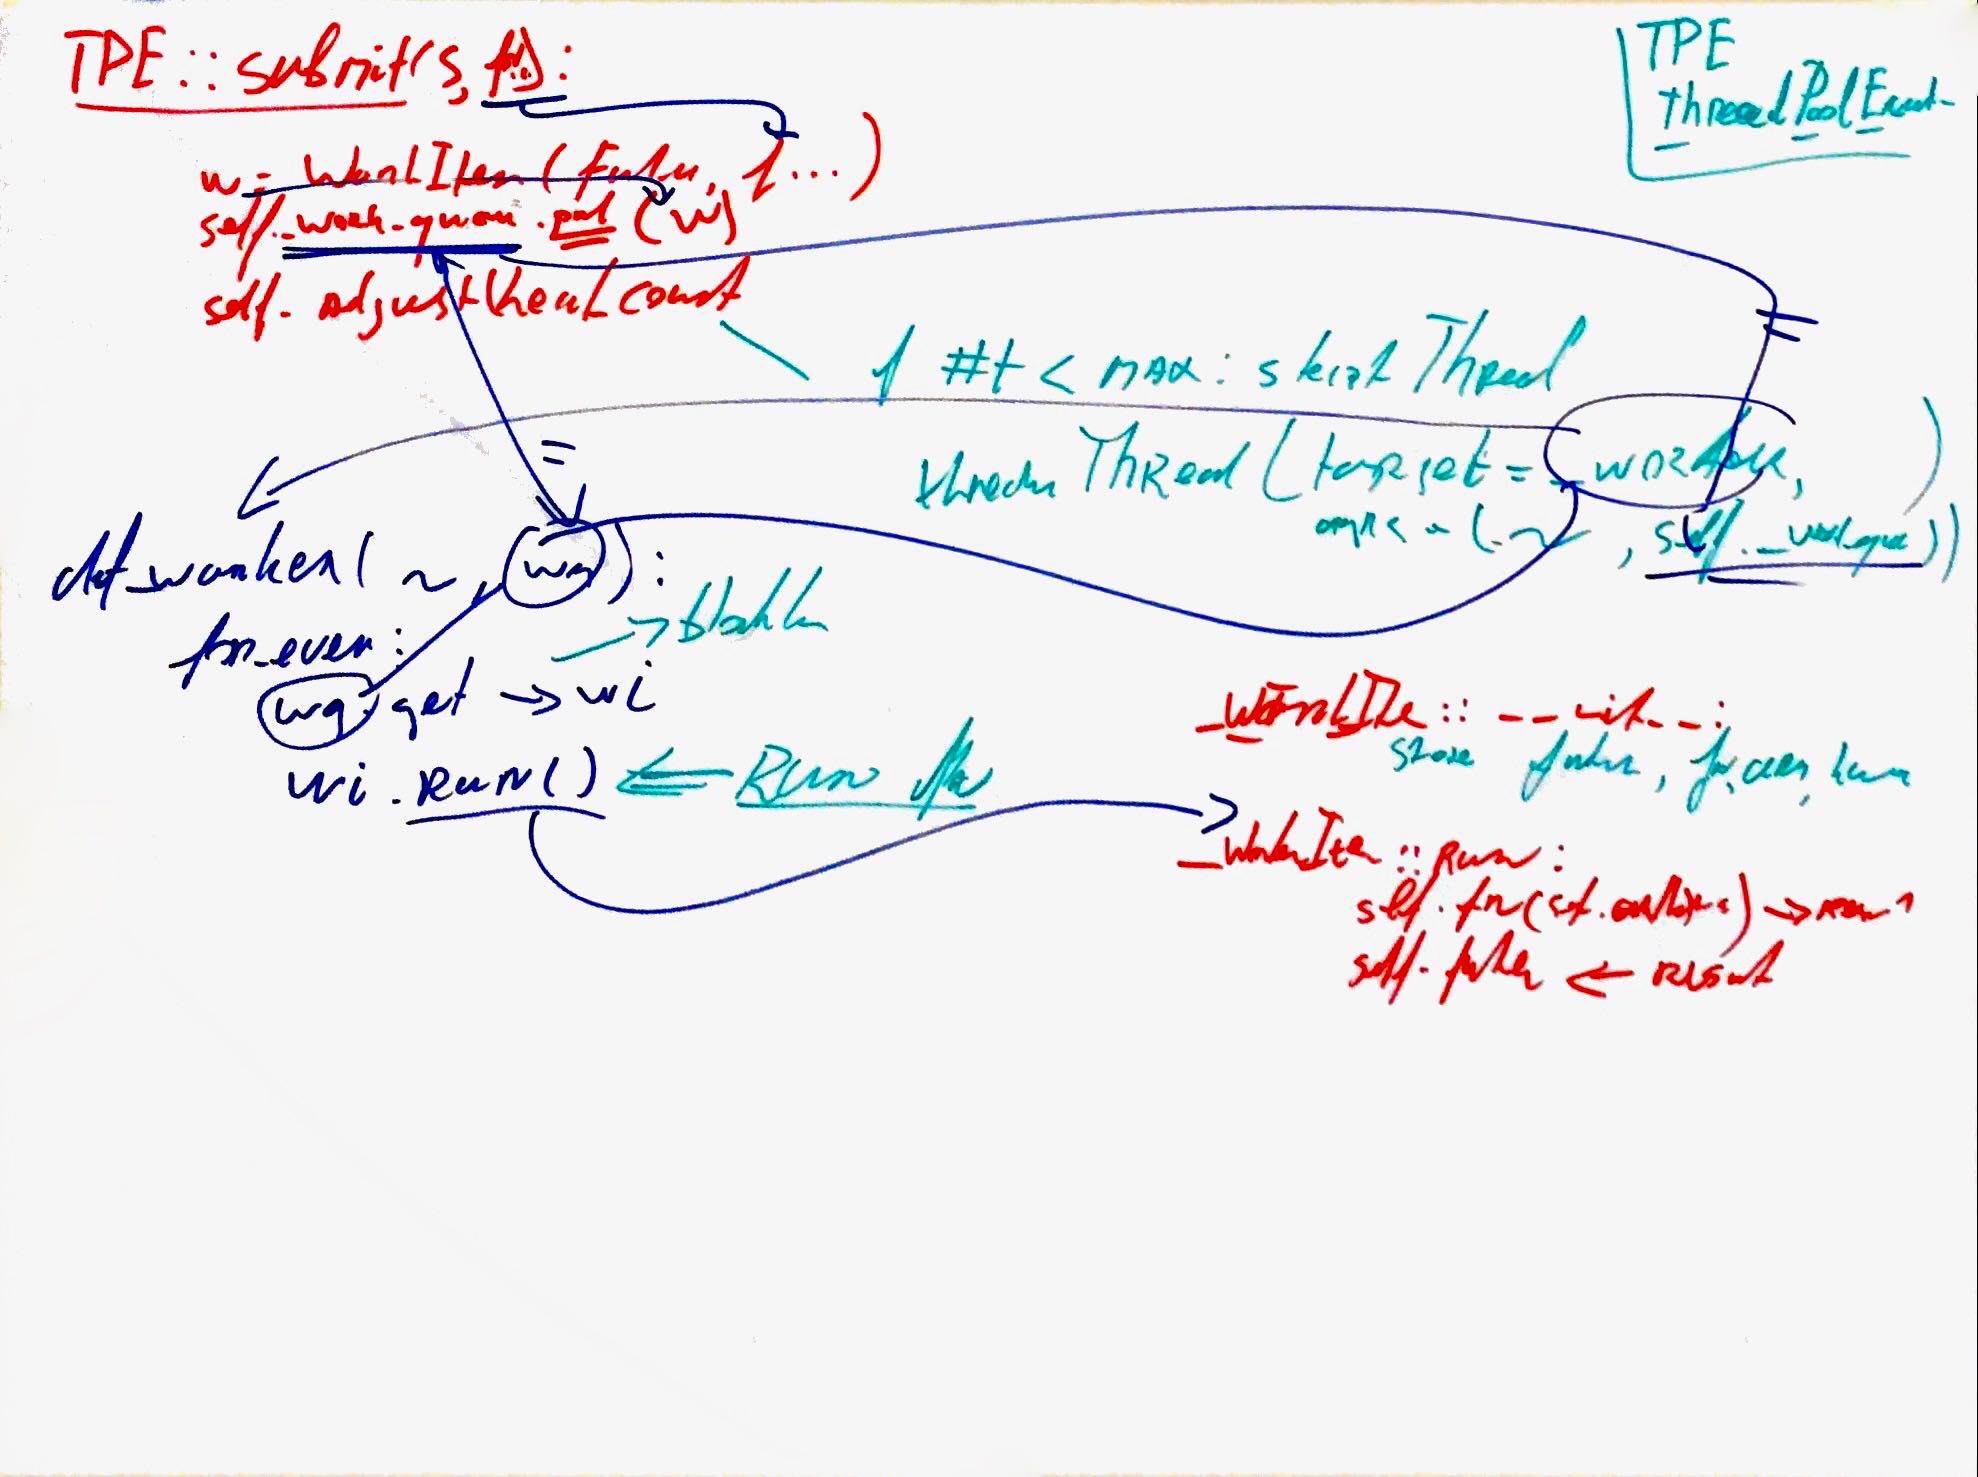 TPE::submit(s, fn):
w = WorkItem(Futu, f...)
self._work_queue.put(w)
self.adjustthreadcount
TPE
threadPoolExecut-
if #t < MAX: start Thread
Thread(target=_worker,
args = (~, self._work_queue))
def_worker(~, wq):
for_ever:
→ block
wq.get → wi
wi.RUN() ⇐ Run fn
_WorkItem:: __init__:
store future, fn, args,
_WorkItem::Run:
self.fn(self.) →
self.future ← result